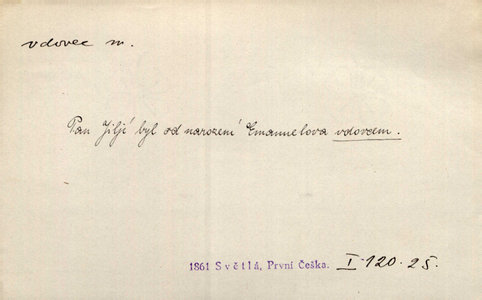 vdovec m.
Pan Jiljí byl od narození Emanuelova vdovcem.
1861 Světlá, První Češka. I.120.25.